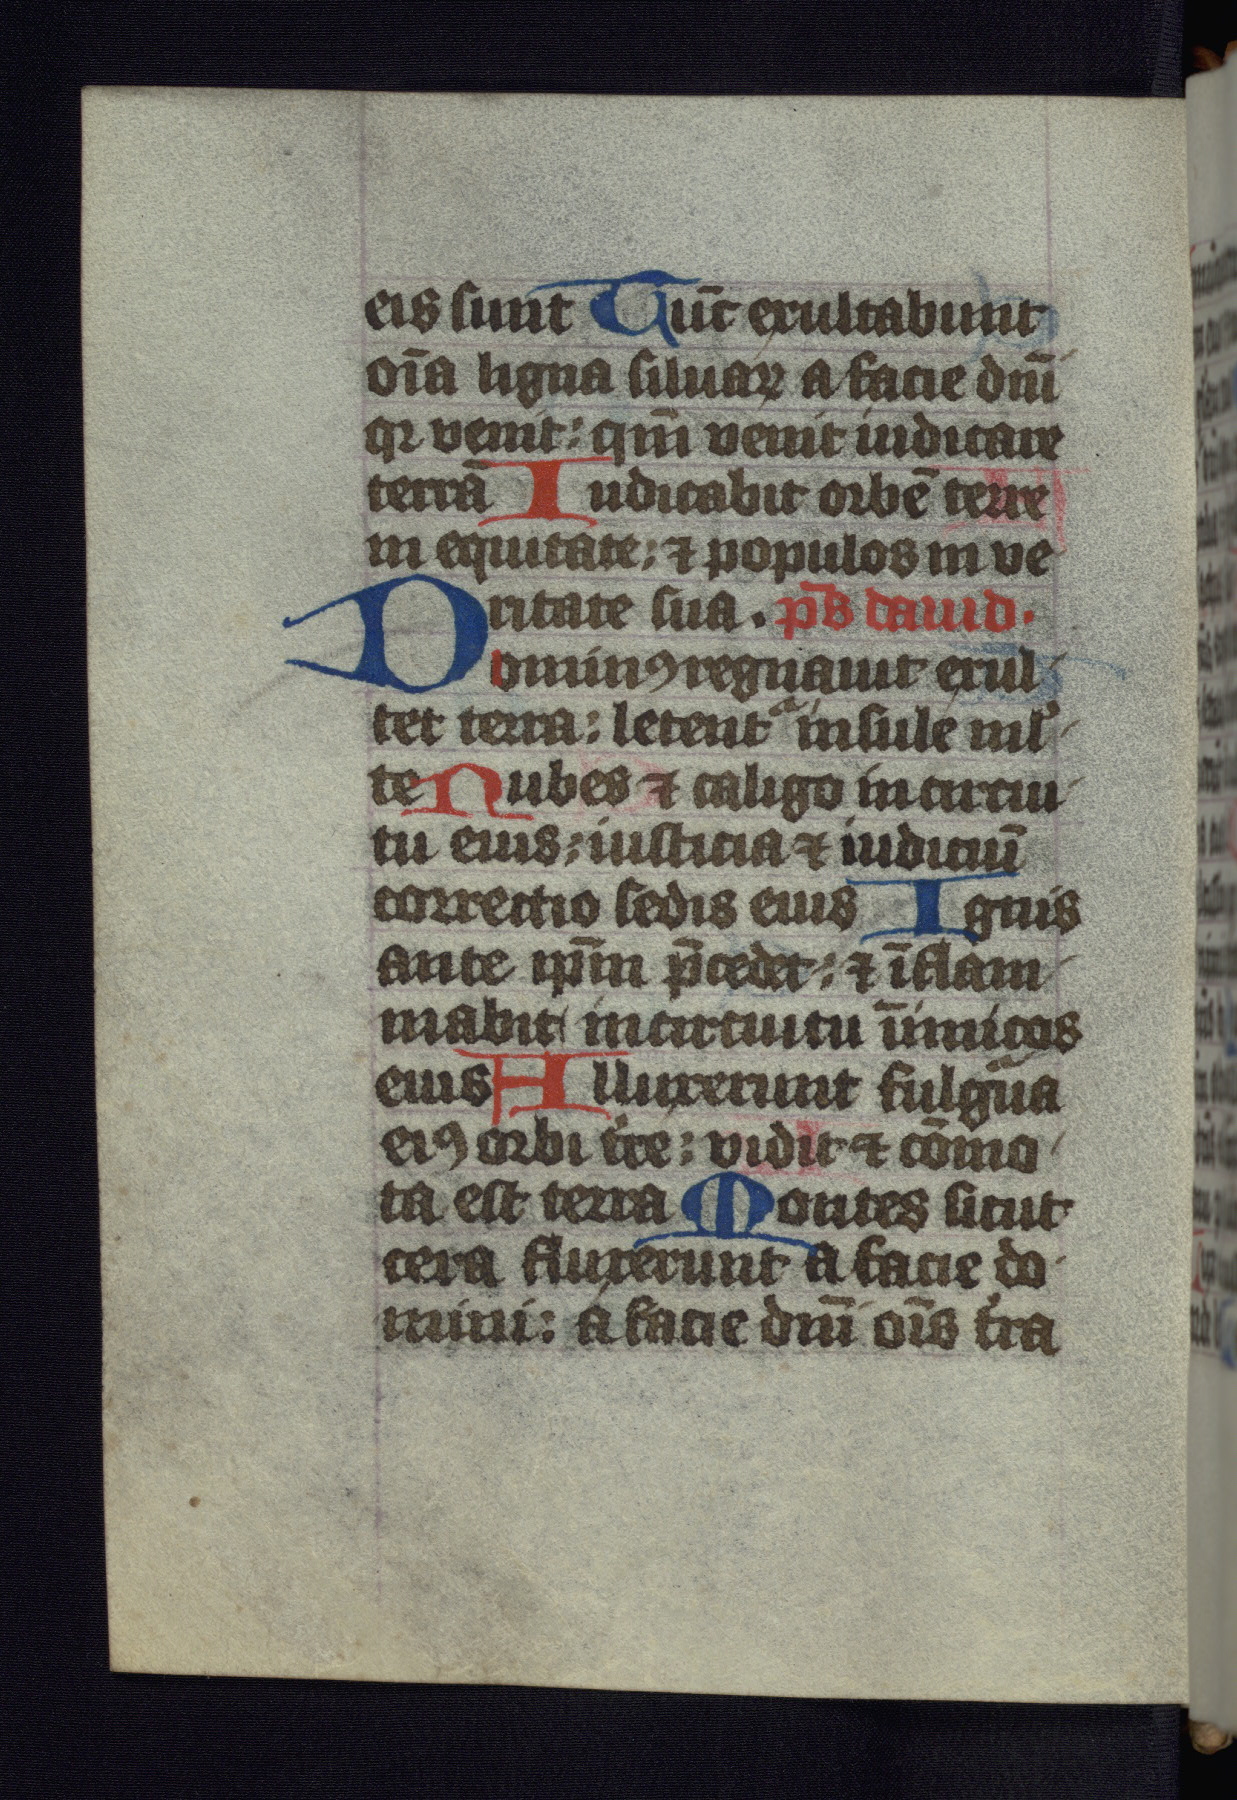 eis sunt Tūc exultabunt
oīa ligna siluaꝝ a facie dn̄i
qꝛ venit: qm̄ venit iudicare
terrā Iudicabit orbē terre
in equitate: ⁊ populos in ve
ritate sua. ps̄ dauid.
Dominꝯ regnauit exul
tet terra: letentᵃ insule ml̓
te Nubes ⁊ caligo in circui
tu eius: iusticia ⁊ iudiciū
correctio sedis eius Ignis
ante ip̄m p̄cedet: ⁊ īflam
mabit in circuitu īimicos
eius Alluxerunt fulgᵃua
eiꝯ orbi t̓re: vidit ⁊ cōmo
ta est terra Montes sicut
cera fluxerunt a facie do
mini: a facie dn̄i oīs t̓ra